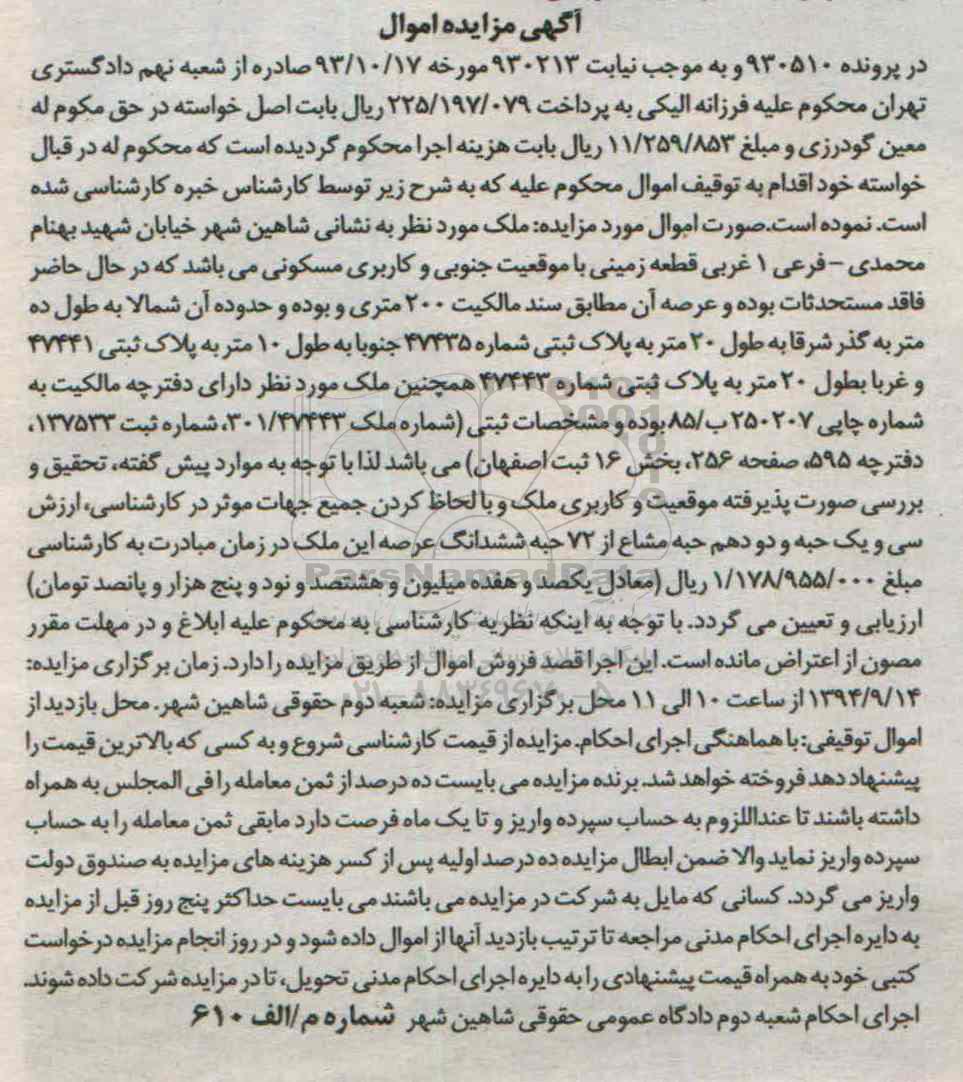 آگهی مزایده اموال
در پرونده ۹۳۰۵۱۰ و به موجب نیابت ۹۳۰۲۱۳ مورخه ۹۳/۱۰/۱۷ صادره از شعبه نهم دادگستری
تهران محکوم علیه فرزانه الیکی به پرداخت ۲۲۵/۱۹۷/۰۷۹ ریال بابت اصل خواسته در حق مکوم له
معین گودرزی و مبلغ ۱۱/۲۵۹/۸۵۳ ریال بابت هزینه اجرا محکوم گردیده است که محکوم له در قبال
خواسته خود اقدام به توقیف اموال محکوم علیه که به شرح زیر توسط کارشناس خبره کارشناسی شده
است. نموده است.صورت اموال مورد مزایده: ملک مورد نظر به نشانی شاهین شهر خیابان شهید بهنام
محمدی – فرعی ۱ غربی قطعه زمینی با موقعیت جنوبی و کاربری مسکونی می باشد که در حال حاضر
فاقد مستحدثات بوده و عرصه آن مطابق سند مالکیت ۲۰۰ متری و بوده و حدوده آن شمالا به طول ده
متر به گذر شرقا به طول ۲۰ متر به پلاک ثبتی شماره ۴۷۴۳۵ جنوبا به طول ۱۰ متر به پلاک ثبتی ۴۷۴۴۱
و غربا بطول ۲۰ متر به پلاک ثبتی شماره ۴۷۴۴۳ همچنین ملک مورد نظر دارای دفترچه مالکیت به
شماره چاپی ۲۵۰۲۰۷ ب/۸۵ بوده و مشخصات ثبتی (شماره ملک ۳۰۱/۴۷۴۴۳، شماره ثبت ۱۳۷۵۳۳،
دفترچه ۵۹۵، صفحه ۲۵۶، بخش ۱۶ ثبت اصفهان) می باشد لذا با توجه به موارد پیش گفته، تحقیق و
بررسی صورت پذیرفته موقعیت و کاربری ملک و با لحاظ کردن جمیع جهات موثر در کارشناسی، ارزش
سی و یک حبه و دو دهم حبه مشاع از ۷۲ حبه ششدانگ عرصه این ملک در زمان مبادرت به کارشناسی
مبلغ ۱/۱۷۸/۹۵۵/۰۰۰ ریال (معادل یکصد و هفده میلیون و هشتصد و نود و پنج هزار و پانصد تومان)
ارزیابی و تعیین می گردد. با توجه به اینکه نظریه کارشناسی به محکوم علیه ابلاغ و در مهلت مقرر
مصون از اعتراض مانده است. این اجرا قصد فروش اموال از طریق مزایده را دارد. زمان برگزاری مزایده:
۱۳۹۴/۹/۱۴ از ساعت ۱۰ الی ۱۱ محل برگزاری مزایده: شعبه دوم حقوقی شاهین شهر. محل بازدید از
اموال توقیفی: با هماهنگی اجرای احکام. مزایده از قیمت کارشناسی شروع و به کسی که بالاترین قیمت را
پیشنهاد دهد فروخته خواهد شد. برنده مزایده می بایست ده درصد از ثمن معامله را فی المجلس به همراه
داشته باشند تا عنداللزوم به حساب سپرده واریز و تا یک ماه فرصت دارد مابقی ثمن معامله را به حساب
سپرده واریز نماید والا ضمن ابطال مزایده ده درصد اولیه پس از کسر هزینه های مزایده به صندوق دولت
واریز می گردد. کسانی که مایل به شرکت در مزایده می باشند می بایست حداکثر پنج روز قبل از مزایده
به دایره اجرای احکام مدنی مراجعه تا ترتیب بازدید آنها از اموال داده شود و در روز انجام مزایده درخواست
کتبی خود به همراه قیمت پیشنهادی را به دایره اجرای احکام مدنی تحویل، تا در مزایده شرکت داده شوند.
اجرای احکام شعبه دوم دادگاه عمومی حقوقی شاهین شهر شماره م/الف ۶۱۰
ParsNamadData
۰۲۱-۸۸۳۴۹۶۷۰-۵